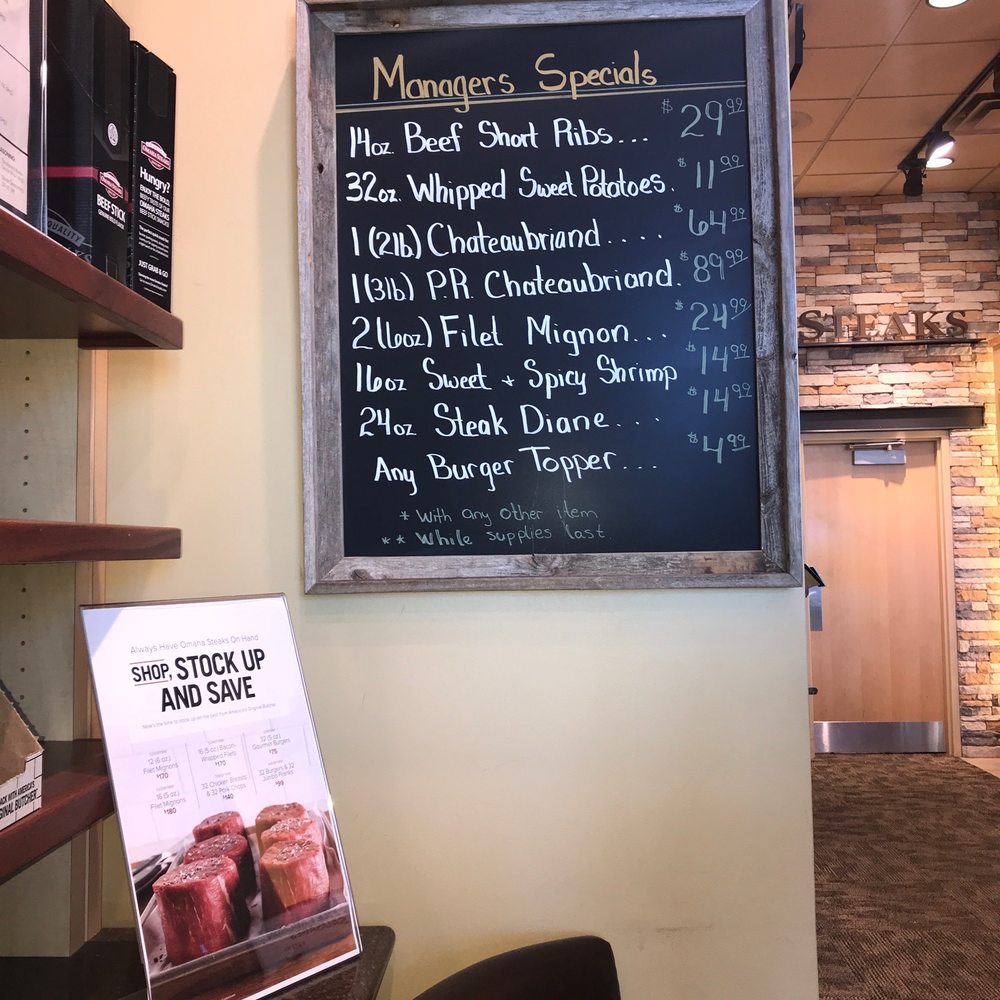 Managers Specials
14oz. Beef Short Ribs... $29.99
32oz. Whipped Sweet Potatoes. $11.99
1 (2lb) Chateaubriand.... $64.99
1 (3lb) P.R. Chateaubriand. $89.99
2 (6oz) Filet Mignon... $24.99
16oz Sweet + Spicy Shrimp $14.99
24oz Steak Diane... $14.99
Any Burger Topper... $4.99
* With any other item
** While supplies last.
STEAKS
OMAHA STEAKS
BEEF STICK
OMAHA STEAKS
Hungry?
JUST GRAB & GO
QUALITY
Always Have Omaha Steaks On Hand
SHOP, STOCK UP
AND SAVE
Now's the time to stock up on the best from America's Original Butcher
12 (6 oz.)
Filet Mignons
$170
16 (5 oz.) Bacon-
Wrapped Filets
$170
32 (5 oz.)
Gourmet Burgers
$75
16 (5 oz.)
Filet Mignons
$180
32 Chicken Breasts
& 32 Pork Chops
$140
32 Burgers & 32
Jumbo Franks
$99
PACK WITH AMERICA'S
ORIGINAL BUTCHER